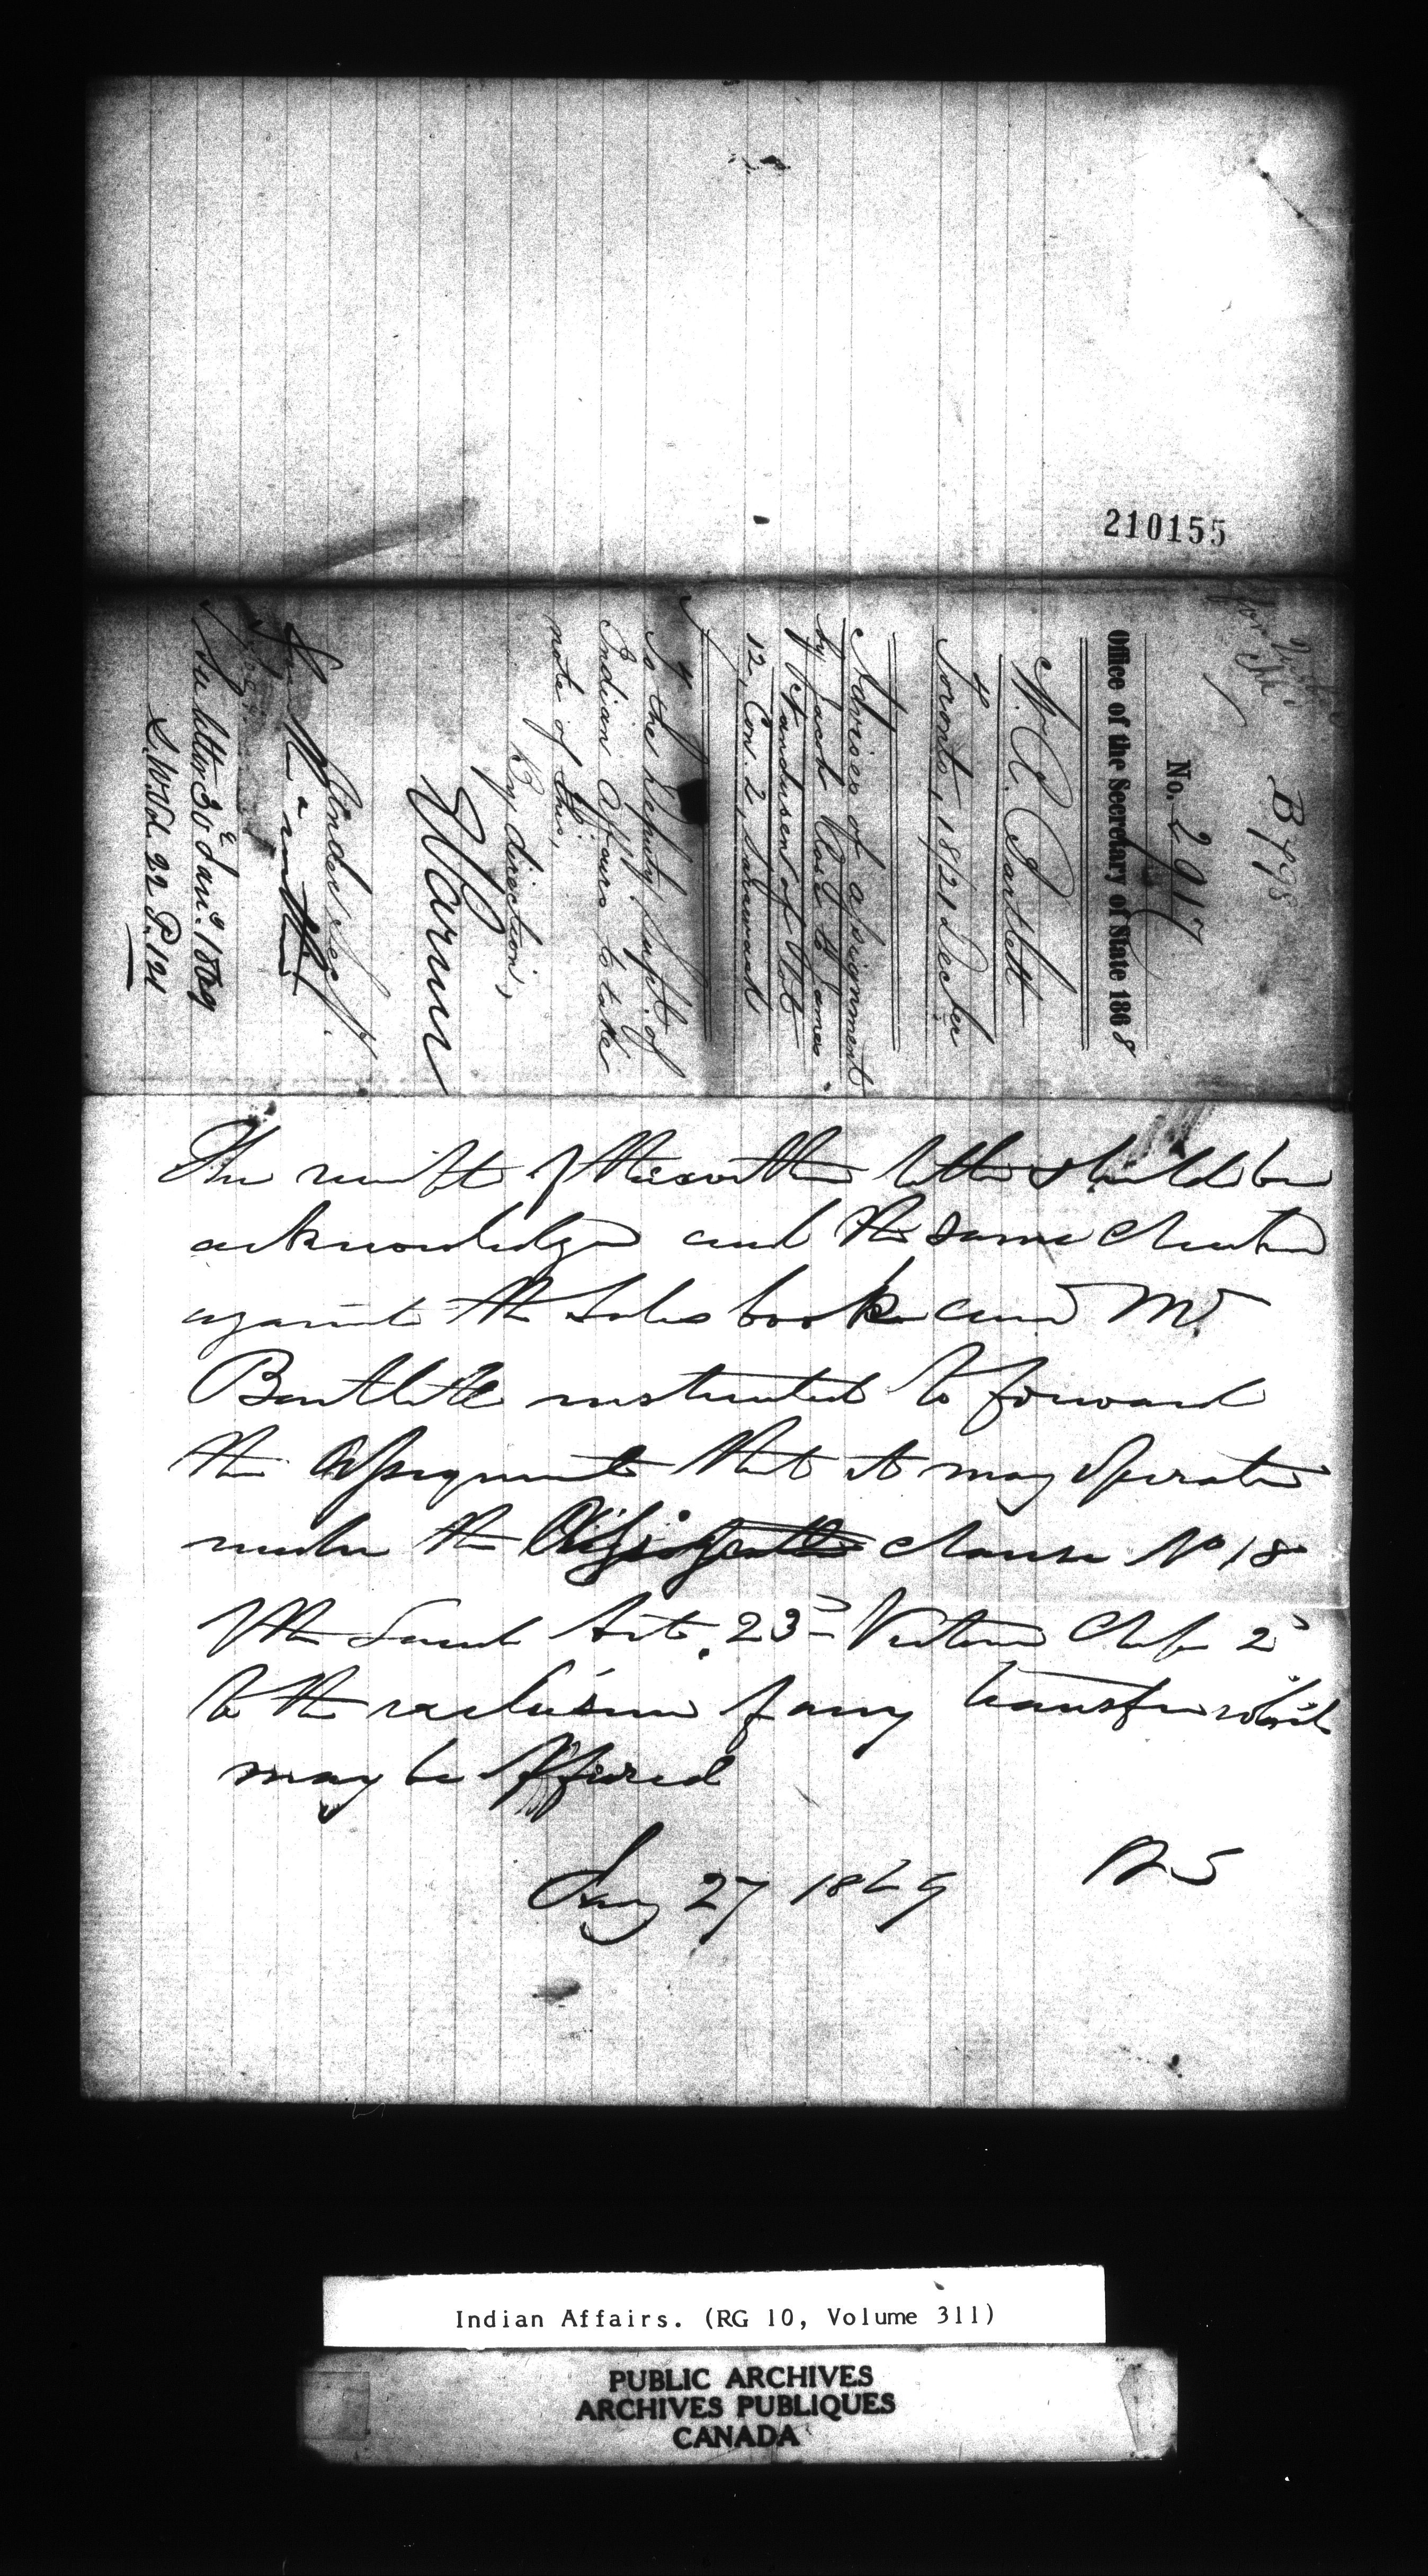 210155
B 798
No. 2917
Office of the Secretary of State 1868
W. R. Bartlett
Toronto, 18/21 Decber
Advises of assignment
by Jacob Rose to James
Vandusen of Lot
12, Con. 2, Sarawak
To the Deputy Supt. of
Indian Affairs to take
note of this,
By direction,
See letter 30 Jany. 1869
S.W.d. 22 P. 121
The receipt of the within letter should be
acknowledged and the same checked
against the sales book and Mr
Bartlett instructed to forward
the assignment that it may operate
under the clause No 18
the Land Act. 23d Victoria Chap 2
to the exclusion of any transfer which
may be
Jany 27 1869
Indian Affairs. (RG 10, Volume 311)
PUBLIC ARCHIVES
ARCHIVES PUBLIQUES
CANADA